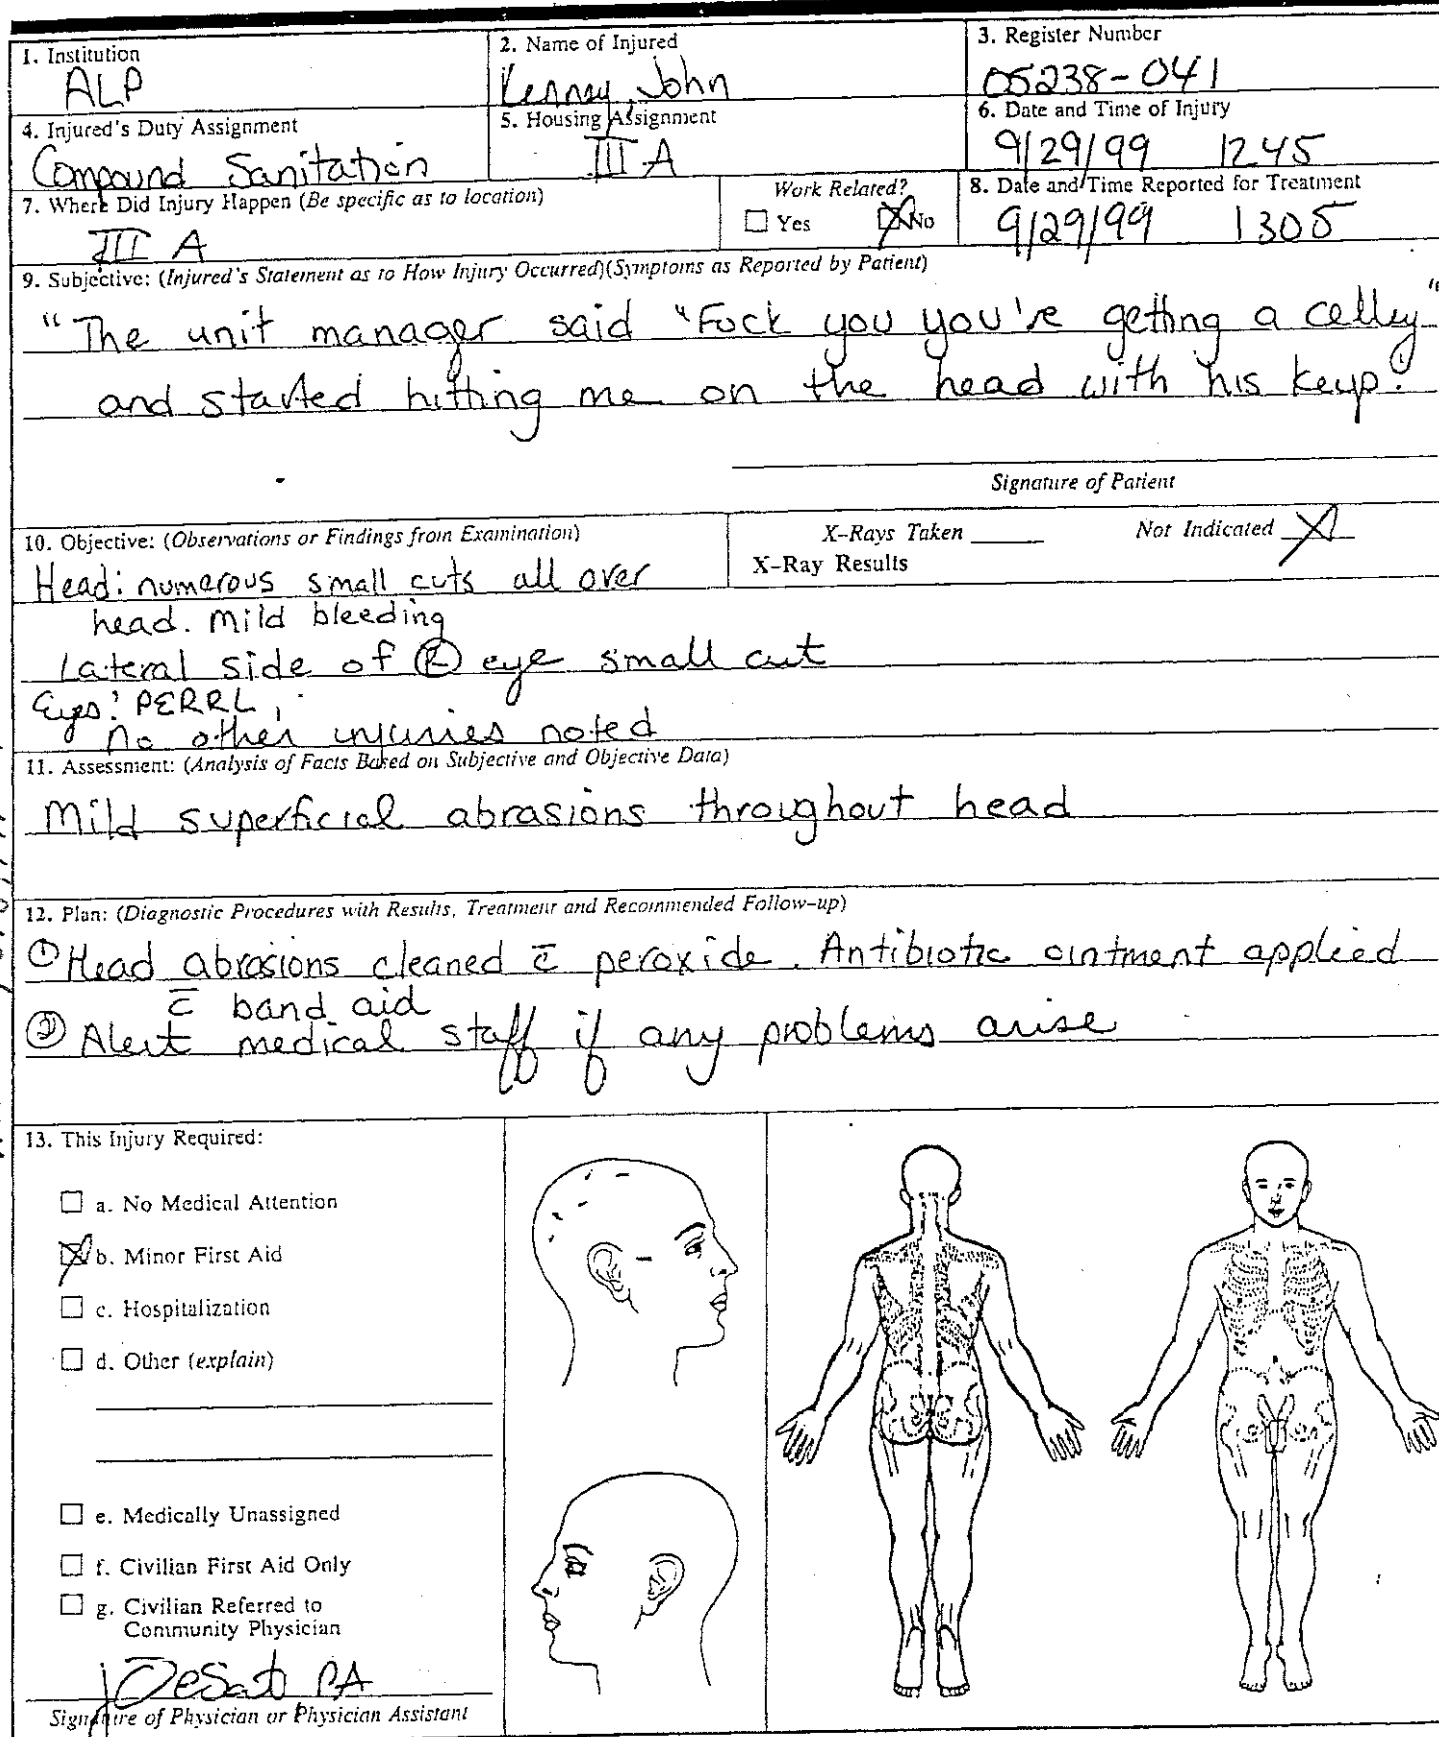 1. Institution
ALP
2. Name of Injured
Kenney, John
3. Register Number
05238-041
4. Injured's Duty Assignment
Compound Sanitation
5. Housing Assignment
III A
6. Date and Time of Injury
9/29/99 1245
7. Where Did Injury Happen (Be specific as to location)
III A
Work Related?
Yes No
8. Date and Time Reported for Treatment
9/29/99 1305
9. Subjective: (Injured's Statement as to How Injury Occurred)(Symptoms as Reported by Patient)
"The unit manager said "Fuck you you're getting a celley"
and started hitting me on the head with his keys."
Signature of Patient
10. Objective: (Observations or Findings from Examination)
X-Rays Taken Not Indicated X
X-Ray Results
Head: numerous small cuts all over
head. Mild bleeding
Lateral side of Ⓡ eye small cut
Eyes: PERRL,
no other injuries noted
11. Assessment: (Analysis of Facts Based on Subjective and Objective Data)
Mild superficial abrasions throughout head
12. Plan: (Diagnostic Procedures with Results, Treatment and Recommended Follow-up)
① Head abrasions cleaned c̄ peroxide. Antibiotic ointment applied
c̄ band aid
② Alert medical staff if any problems arise
13. This Injury Required:
a. No Medical Attention
b. Minor First Aid
c. Hospitalization
d. Other (explain)
e. Medically Unassigned
f. Civilian First Aid Only
g. Civilian Referred to
Community Physician
PA
Signature of Physician or Physician Assistant